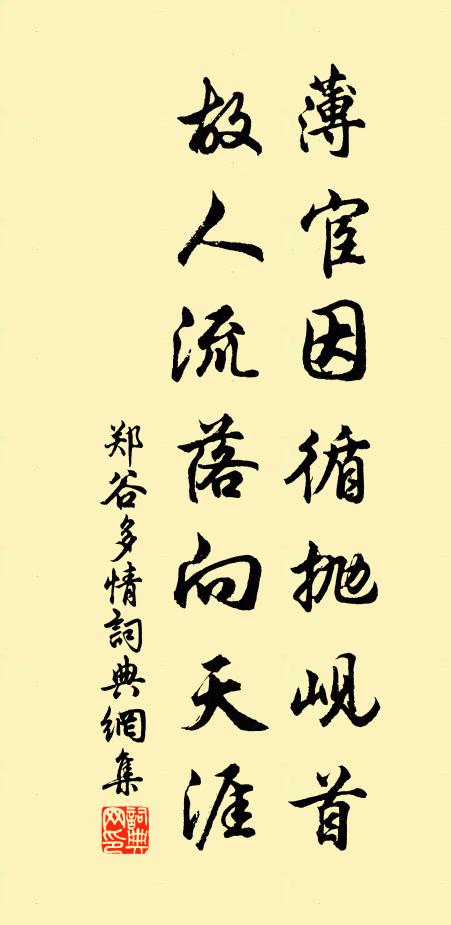 薄宦因循抛岘首
故人流落向天涯
郑谷多情詞典網集
詞典网印